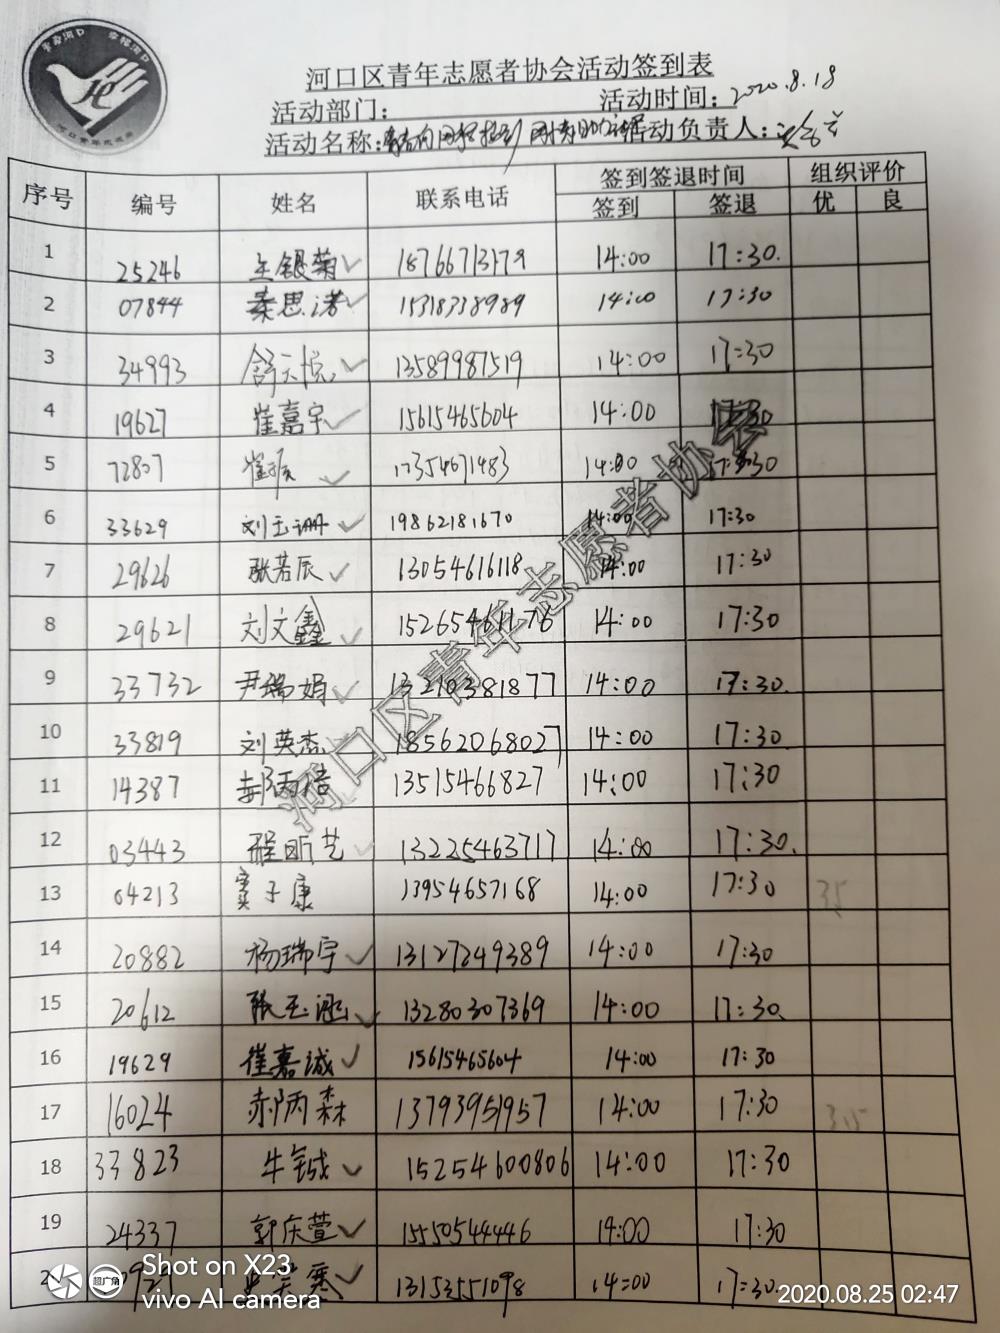 河口区青年志愿者协会活动签到表
活动部门: 活动时间: 2020.8.18
活动名称: 活动负责人:
序号 编号 姓名 联系电话 签到签退时间 组织评价
签到 签退 优 良
1 25246 王银菊✓ 18766713179 14:00 17:30.
2 07844 秦思诺✓ 15318338989 14:00 17:30
3 34993 舒天悦✓ 13589987519 14:00 17:30
4 19627 崔嘉宇✓ 15615465604 14:00 17:30
5 72807 ✓ 17354671483 14:00 17:30
6 33629 刘玉珊✓ 19862181670 14:00 17:30
7 29626 张若辰✓ 13054616118 14:00 17:30
8 29621 刘文鑫✓ 15265461176 14:00 17:30
9 33732 尹瑞娟✓ 13210381877 14:00 17:30.
10 33819 刘英杰 18562068027 14:00 17:30
11 14387 13515466827 14:00 17:30
12 03443 程昕艺✓ 13225463717 14:00 17:30.
13 04213 窦子康 13954657168 14:00 17:30 35
14 20882 杨瑞宇✓ 13127249389 14:00 17:30
15 20612 张玉涵✓ 13280307369 14:00 17:30
16 19629 崔嘉诚✓ 15615465604 14:00 17:30
17 16024 郝丙森 13793951957 14:00 17:30
18 33823 牛钰诚✓ 15254600806 14:00 17:30
19 24337 郭庆萱✓ 15550544446 14:00 17:30
✓ 13153551098 14:00 17:30
河口区青年志愿者协会
Shot on X23
vivo AI camera
超广角
2020.08.25 02:47